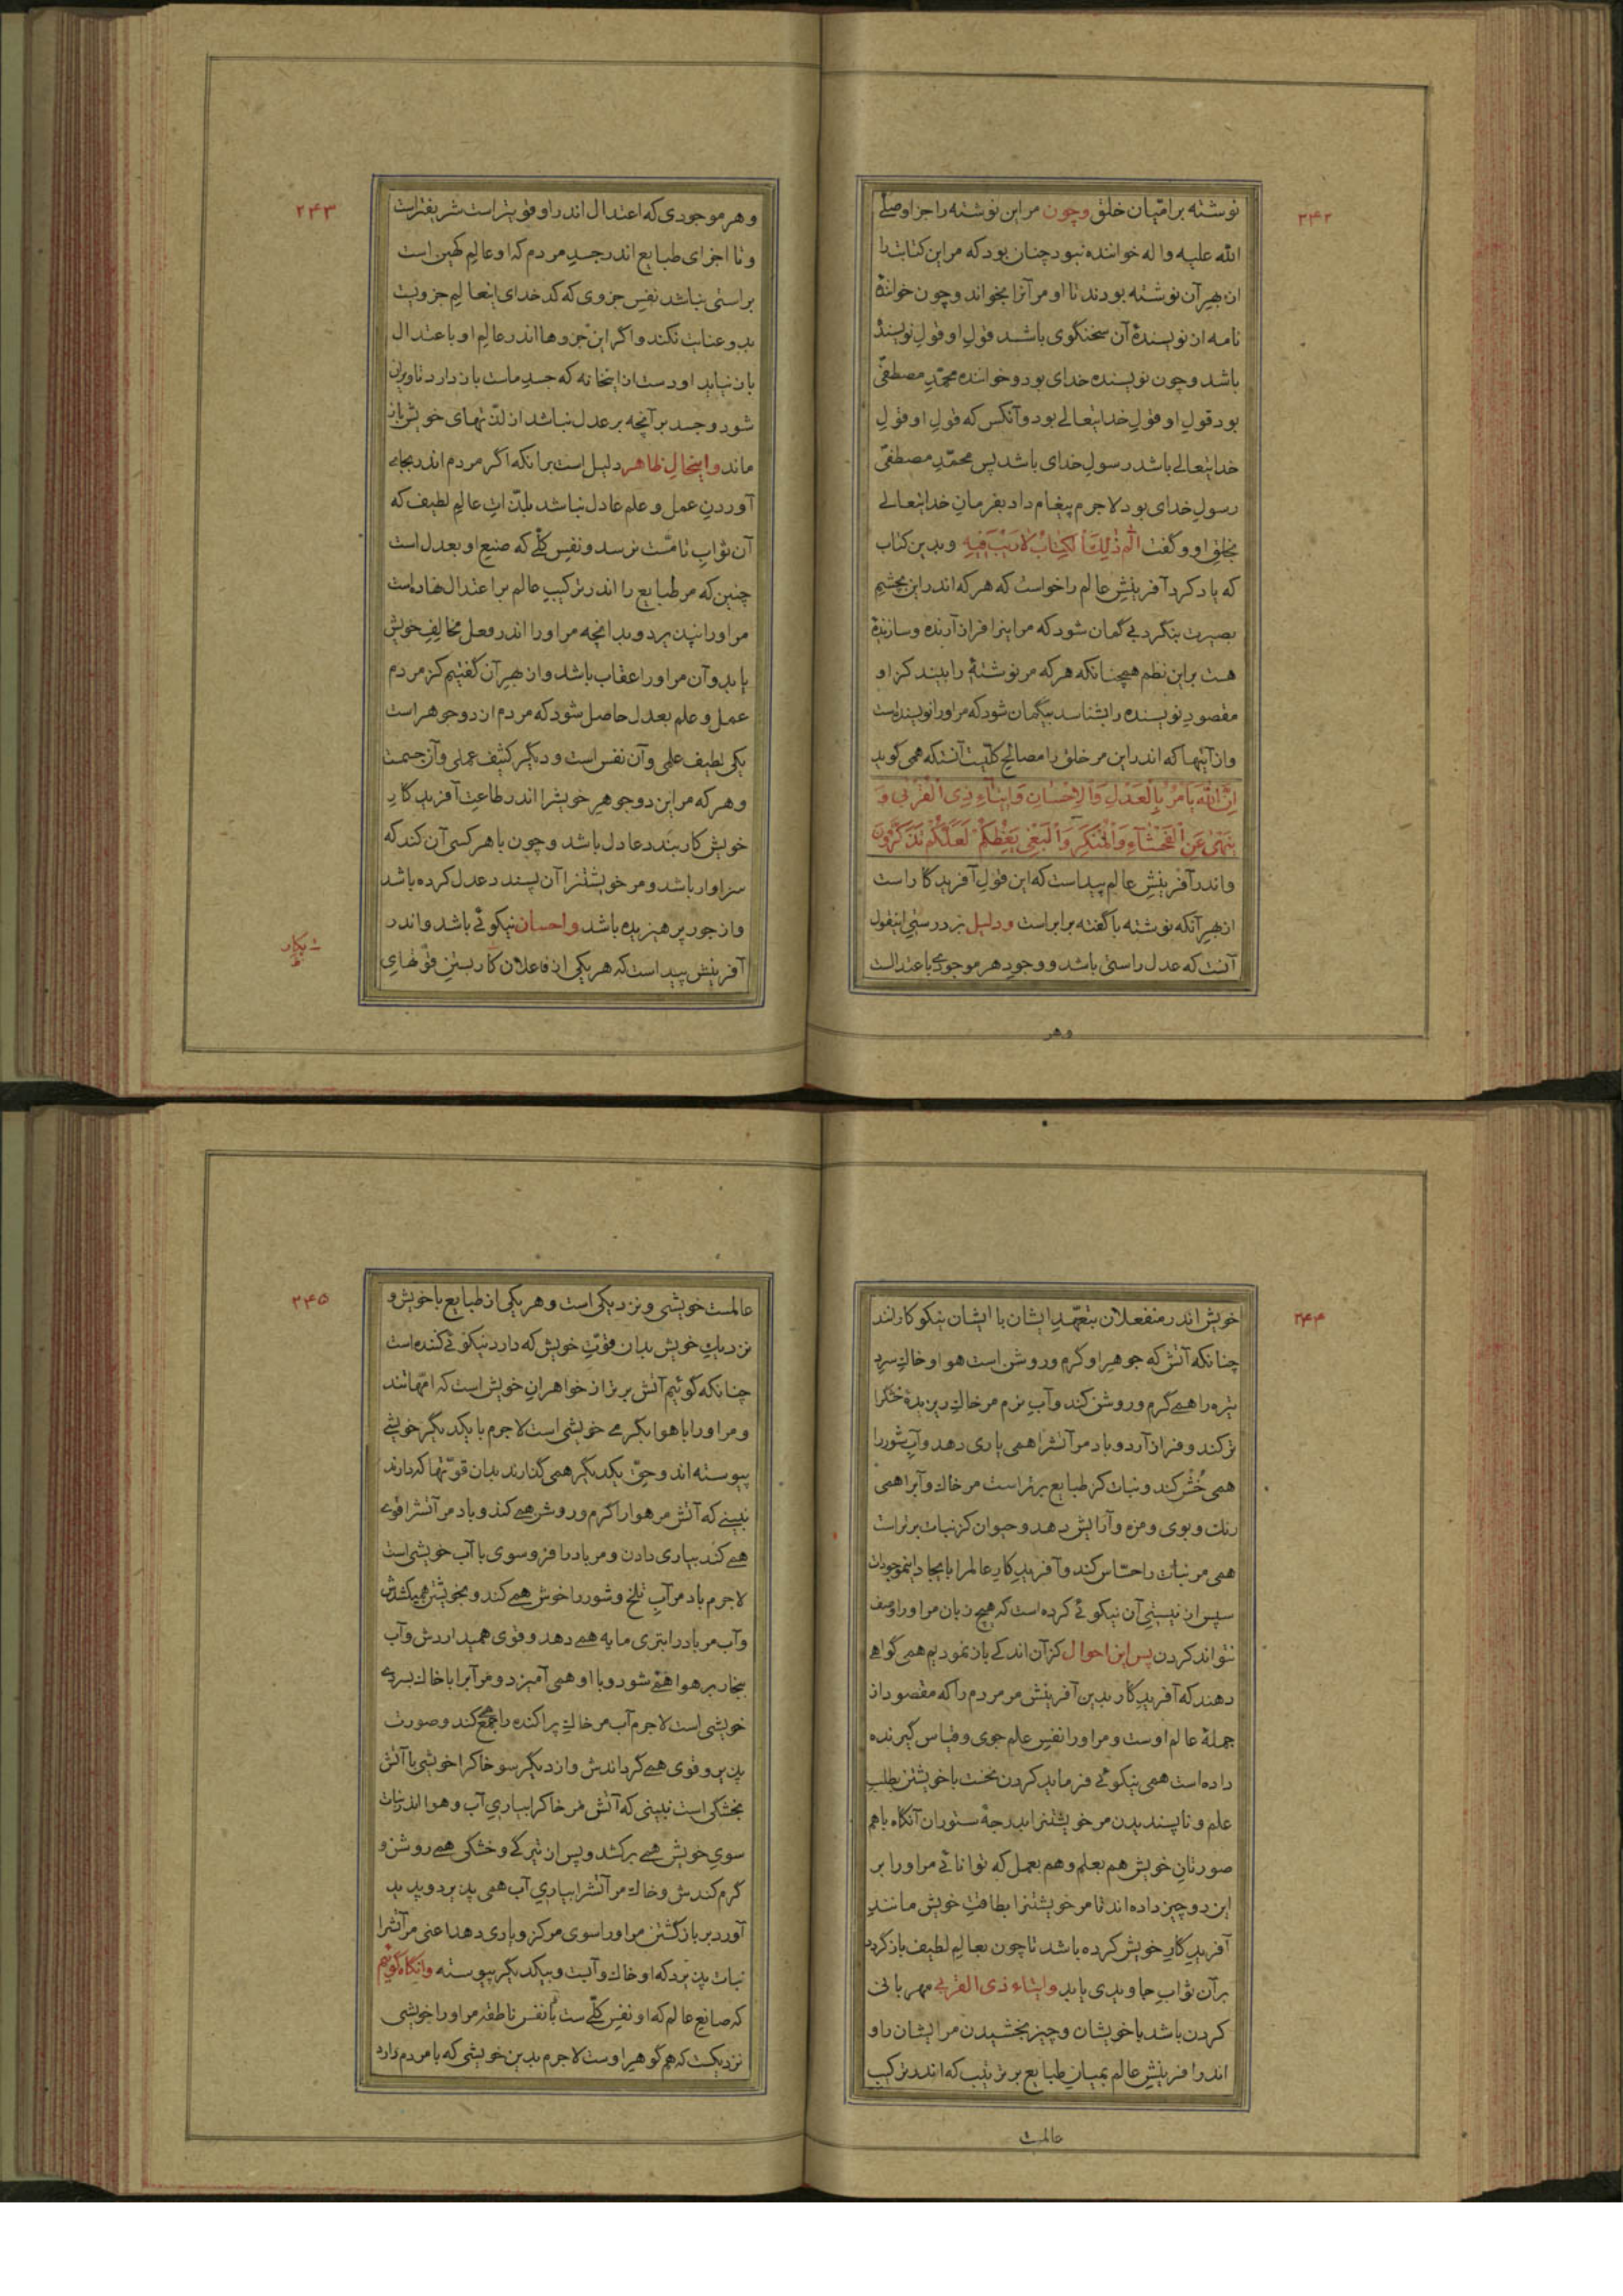 ۲۴۲
نوشته بر امّیان خلق وچون مر این نوشته را جز او صلے
الله علیه واله خواننده نبود چنان بود که مر این کتابت را
از بهر آن نوشته بودند تا او مر آنرا بخواند وچون خوانندهٔ
نامه از نویسندهٔ آن سخنگوی باشد قولِ او قولِ نویسندهٔ
باشد وچون نویسنده خدای بود وخواننده محمّدِ مصطفیٰ
بود قولِ او قولِ خدایتعالے بود وآنکس که قولِ او قولِ
خدایتعالے باشد رسولِ خدای باشد پس محمّدِ مصطفیٰ
رسولِ خدای بود لاجرم پیغام داد بفرمانِ خدایتعالے
بخلقِ او وگفت الٓمٓ ذٰلِكَ الْكِتٰابُ لاٰ رَیْبَ فِیهِ وبدین کتاب
که یاد کرد آفرینشِ عالم را خواست که هر که اندر این بچشمِ
بصیرت بنگرد بے گمان شود که مر اینرا فراز آرنده وسازندهٔ
هست براین نظم همچنانکه هر که مر نوشتهٔ را بیند کز او
مقصودِ نویسنده را بشناسد بیگمان شود که مر اورا نویسنده‌ست
واز آیتها که اندر این مر خلق را مصالحِ کلّیت آنستکه همی گوید
اِنَّ اللّٰهَ یَأْمُرُ بِالْعَدْلِ وَالْاِحْسٰانِ وَاِیتٰاءِ ذِی الْقُرْبٰی وَ
یَنْهیٰ عَنِ الْفَحْشٰآءِ وَالْمُنْكَرِ وَالْبَغْیِ یَعِظُكُمْ لَعَلَّكُمْ تَذَكَّرُونَ
واندر آفرینشِ عالم پیداست که این قولِ آفریدگار است
از بهر آنکه نوشته با گفته برابر است ودلیل بر درستیِ اینقول
آنست که عدل راستی باشد ووجودِ هر موجودی باعتدالست
وهر
۲۴۳
وهر موجودی که اعتدال اندر او قویتر است شریفتر است
وتا اجزای طبایع اندر جسدِ مردم که او عالمِ کهین است
براستی نباشد نفسِ جزوی که کدخدای اینعالمِ جزویست
بدو عنایت نکند واگر این جزوها اندر عالمِ او باعتدال
باز نیاید او دست از اینخانه که جسدِ ماست باز دارد تا ویران
شود وجسد بر آنچه بر عدل نباشد از لذّتهای خویش باز
ماند واینحالِ ظاهر دلیل است برانکه اگر مردم اندر بجاے
آوردنِ عمل وعلم عادل نباشد بلذّاتِ عالمِ لطیف که
آن ثوابِ تامّست نرسد ونفسِ کلّے که صنعِ او بعدل است
چنین که مر طبایع را اندر ترکیبِ عالم بر اعتدال نهاده‌ست
مر اورا نپذیرد وبدانچه مر اورا اندر فعل مخالفِ خویش
یابد وآن مر اورا عقاب باشد واز بهر آن گفتیم کز مردم
عمل وعلم بعدل حاصل شود که مردم از دو جوهر است
یکی لطیف علمی وآن نفس است ودیگر کثیف عملی وآن جسمست
وهر که مر این دو جوهرِ خویشرا اندر طاعتِ آفریدگارِ
خویش کار بندد عادل باشد وچون با هر کسی آن کند که
سزاوار باشد ومر خویشتنرا آن پسندد عدل کرده باشد
واز جور پرهیزیده باشد واحسان نیکوئے باشد واندر
آفرینش پیداست که هر یکی از فاعلان کار بستنِ قوّتهایِ
۲۴۴
خویش اندر منفعلان بتعهّدِ ایشان با ایشان نیکو کارلند
چنانکه آتش که جوهرِ او گرم وروشن است هوا وخاكِ سردِ
تیره را همے گرم وروشن کند وآبِ نرم مر خاكِ ریزیدهٔ خشكرا
تر کند وفراز آرد وباد مر آتشرا همی یاری دهد وآبِ شور را
همی خُش کند ونبات کز طبایع برتر است مر خاك وآبرا همی
رنك وبوی ومزه وآرایش دهد وحیوان کز نبات برتر است
همی مر نبات را حسّاس کند وآفریدگار عالم را بایجادِ اینموجودات
سپس از نیستی آن نیکوئے کرده است که هیچ زبان مر اورا وصف
نتواند کردن پس این احوال کز آن اندکے باز نمودیم همی گواهے
دهند که آفریدگار بدین آفرینش مر مردم را که مقصود از
جملهٔ عالم اوست ومر اورا نفسِ علم جوی وقیاس گیرنده
داده است همی نیکوئے فرماید کردن نخست با خویشتن بطلبِ
علم وناپسندیدن مر خویشتنرا بدرجهٔ ستوران آنگاه با هم
صورتانِ خویش هم بعلم وهم بعمل که توانائے مر اورا بر
این دو چیز داده اند تا مر خویشتنرا بطاقتِ خویش مانندِ
آفریدگارِ خویش کرده باشد تا چون بعالمِ لطیف باز گردد
برآن ثوابِ جاویدی یابد وایتاء ذی القربیٰ مهربانی
کردن باشد با خویشان وچیز بخشیدن مر ایشان را و
اندر افرینشِ عالم بمیانِ طبایع بر ترتیب که اندر ترکیبِ
عالمست
۲۴۵
عالمست خویشی ونزدیکی است وهر یکی از طبایع با خویش و
نزدیكِ خویش بدان قوّتِ خویش که دارد نیکوئے کننده است
چنانکه گوئیم آتش برتر از خواهرانِ خویش است که امّهاتند
ومر اورا با هوا بگرمے خویشی است لاجرم با یکدیگر خویشے
پیوسته اند وحقِّ یکدیگر همی گذارند بدان قوّتها که دارند
نبینے که آتش مر هوا را گرم وروشن همے کند وباد مر آتشرا قوی
همے کند بیاری دادن ومر باد را فرو سوی با آب خویشی است
لاجرم باد مر آبِ تلخ وشور را خوش همے کند وبخویشتن همیکشدش
وآب مر باد را بتری مایه همے دهد وقوی همیداردش وآب
بخار بر هوا همے شود وبا او همی آمیزد ومر آبرا با خاك بسردے
خویشی است لاجرم آب مر خاكِ پراکنده را جمع کند وصورت
پذیر وقوی همے گرداندش واز دیگر سو خاكرا خویشی با آتش
بخشکی است نبینی که آتش مر خاكرا بیاریِ آب وهوا اندر نبات
سویِ خویش همے برکشد وپس از تیرگے وخشکی همے روشن و
گرم کندش وخاك مر آتشرا بیاریِ آب همی پذیرد وپدید
آورد بر باز گشتنِ مر اورا سوی مرکز ویاری دهد اعنی مر آتشرا
نبات پذیرد که او خاك وآبست وبیکدیگر پیوسته وانگاه گوئیم
که صانعِ عالم که او نفسِ کلّے ست با نفسِ ناطقه مر اورا خویشی
نزدیکست که هم گوهرِ اوست لاجرم بدین خویشی که با مردم دارد